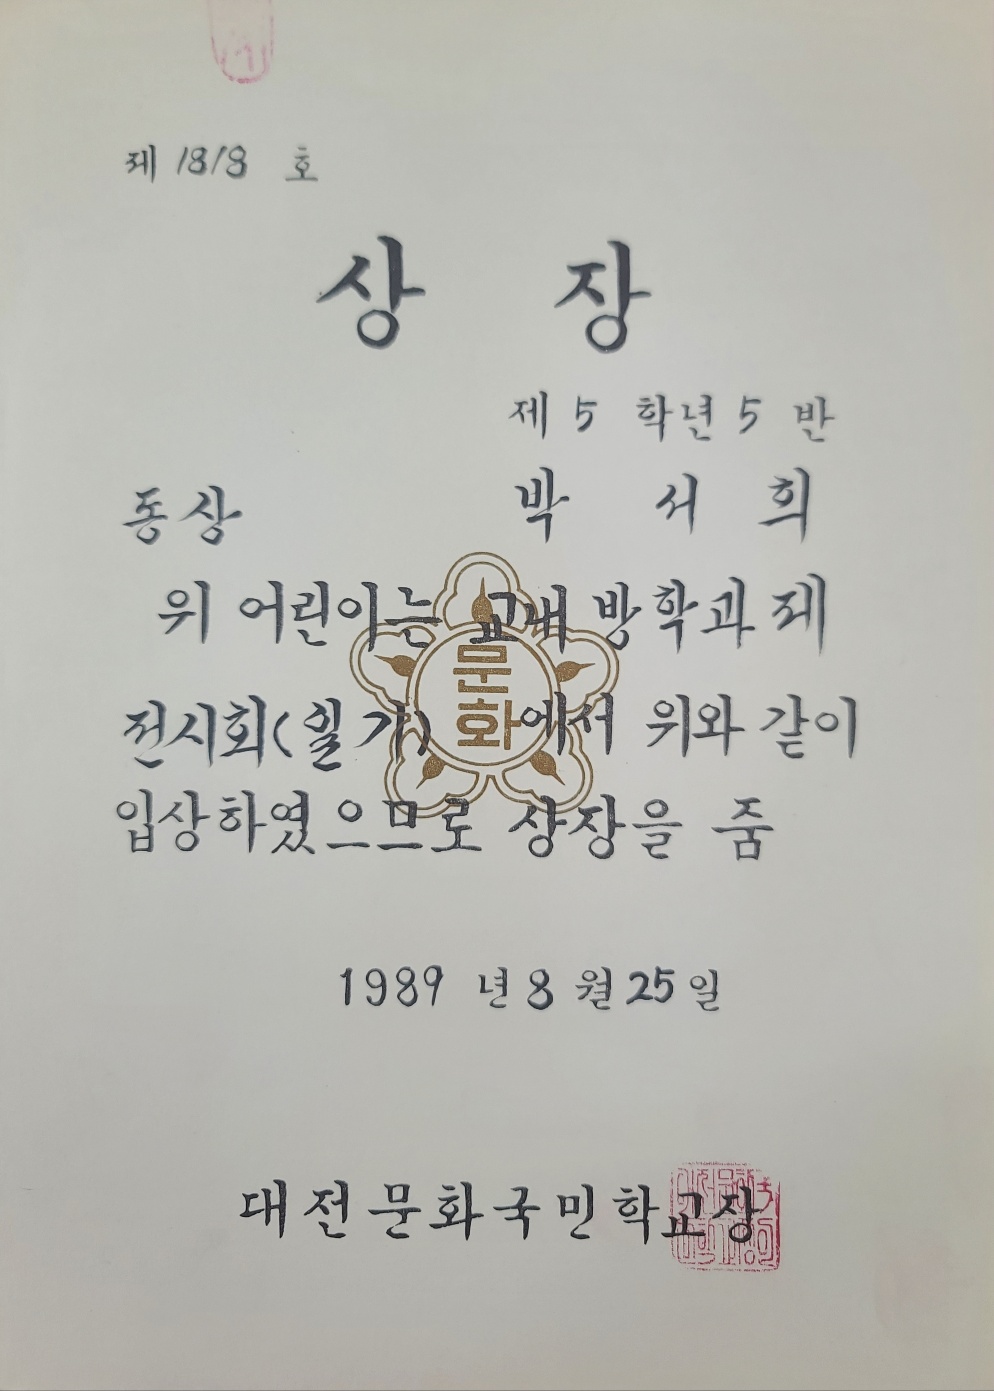 제 1818 호
상 장
제 5 학년 5 반
동상 박 서 희
위 어린이는 교내 방학과제
전시회(일기)에서 위와 같이
입상하였으므로 상장을 줌
문화
1989 년 8 월 25 일
대전문화국민학교장